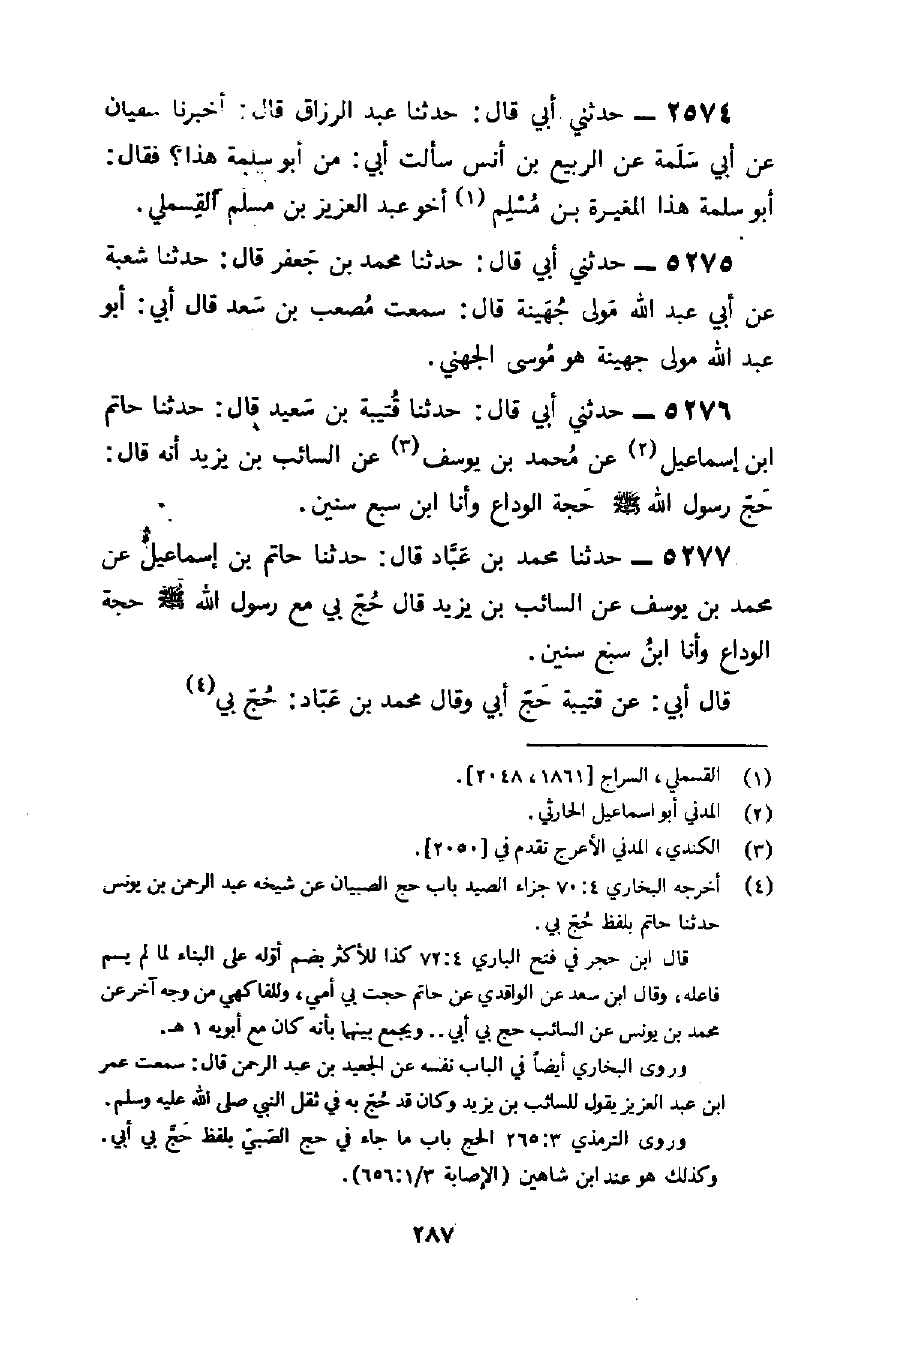 ٢٥٧٤ ــ حدثني أبي قال: حدثنا عبد الرزاق قال: أخبرنا سفيان
عن أبي سَلَمة عن الربيع بن أنس سألت أبي: من أبو سلمة هذا؟ فقال:
أبو سلمة هذا المغيرة بـن مُسْلِم (١) أخو عبد العزيز بن مسلم القِسملي.
٥٢٧٥ ــ حدثني أبي قال: حدثنا محمد بن جَعفر قال: حدثنا شعبة
عن أبي عبد الله مَولى جُهَينة قال: سمعت مُصعب بن سَعد قال أبي: أبو
عبد الله مولى جهينة هو مُوسى الجهني.
٥٢٧٦ ــ حدثني أبي قال: حدثنا قُتيبة بن سَعيد قال: حدثنا حاتم
ابن إسماعيل (٢) عن مُحمد بن يوسف (٣) عن السائب بن يزيد أنه قال:
حَجّ رسول الله ﷺ حَجة الوداع وأنا ابن سبع سنين.
٥٢٧٧ ــ حدثنا محمد بن عَبَّاد قال: حدثنا حاتم بن إسماعيل عن
محمد بن يوسف عن السائب بن يزيد قال حُجّ بي مع رسول الله ﷺ حجة
الوداع وأنا ابنُ سبْع سنين.
قال أبي: عن قتيبة حَجّ أبي وقال محمد بن عَبّاد: حُجّ بي (٤)
(١) القسملي، السراج [١٨٦١، ٢٠٤٨].
(٢) المدني أبو اسماعيل الحارثي.
(٣) الكندي، المدني الأعرج تقدم في [٢٠٥٠].
(٤) أخرجه البخاري ٤: ٧٠ جزاء الصيد باب حج الصبيان عن شيخه عبد الرحمن بن يونس
حدثنا حاتم بلفظ حُجّ بي.
قال ابن حجر في فتح الباري ٤:٧٢ كذا للأكثر بضم أوّله على البناء لما لم يسم
فاعله، وقال ابن سعد عن الواقدي عن حاتم حجت بي أمي، وللفاكهي من وجه آخر عن
محمد بن يونس عن السائب حج بي أبي.. ويجمع بينها بأنه كان مع أبويه ١ هـ.
وروى البخاري أيضاً في الباب نفسه عن الجعيد بن عبد الرحمن قال: سمعت عمر
ابن عبد العزيز يقول للسائب بن يزيد وكان قد حُجّ به في ثقل النبي صلى الله عليه وسلم.
وروى الترمذي ٣:٢٦٥ الحج باب ما جاء في حج الصَبيّ بلفظ حَجَّ بي أبي.
وكذلك هو عند ابن شاهين (الإصابة ١/٣:٦٥٦).
٢٨٧